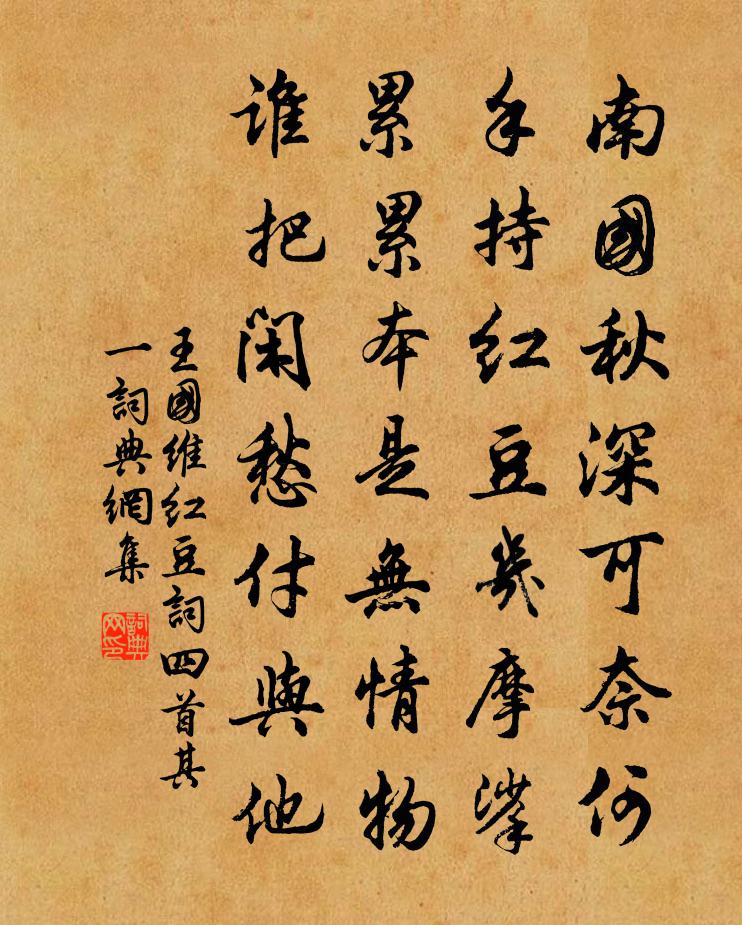 南國秋深可奈何
手持紅豆幾摩挲
累累本是無情物
誰把閑愁付與他
王國维紅豆詞四首其
一詞典網集
詞典
网印